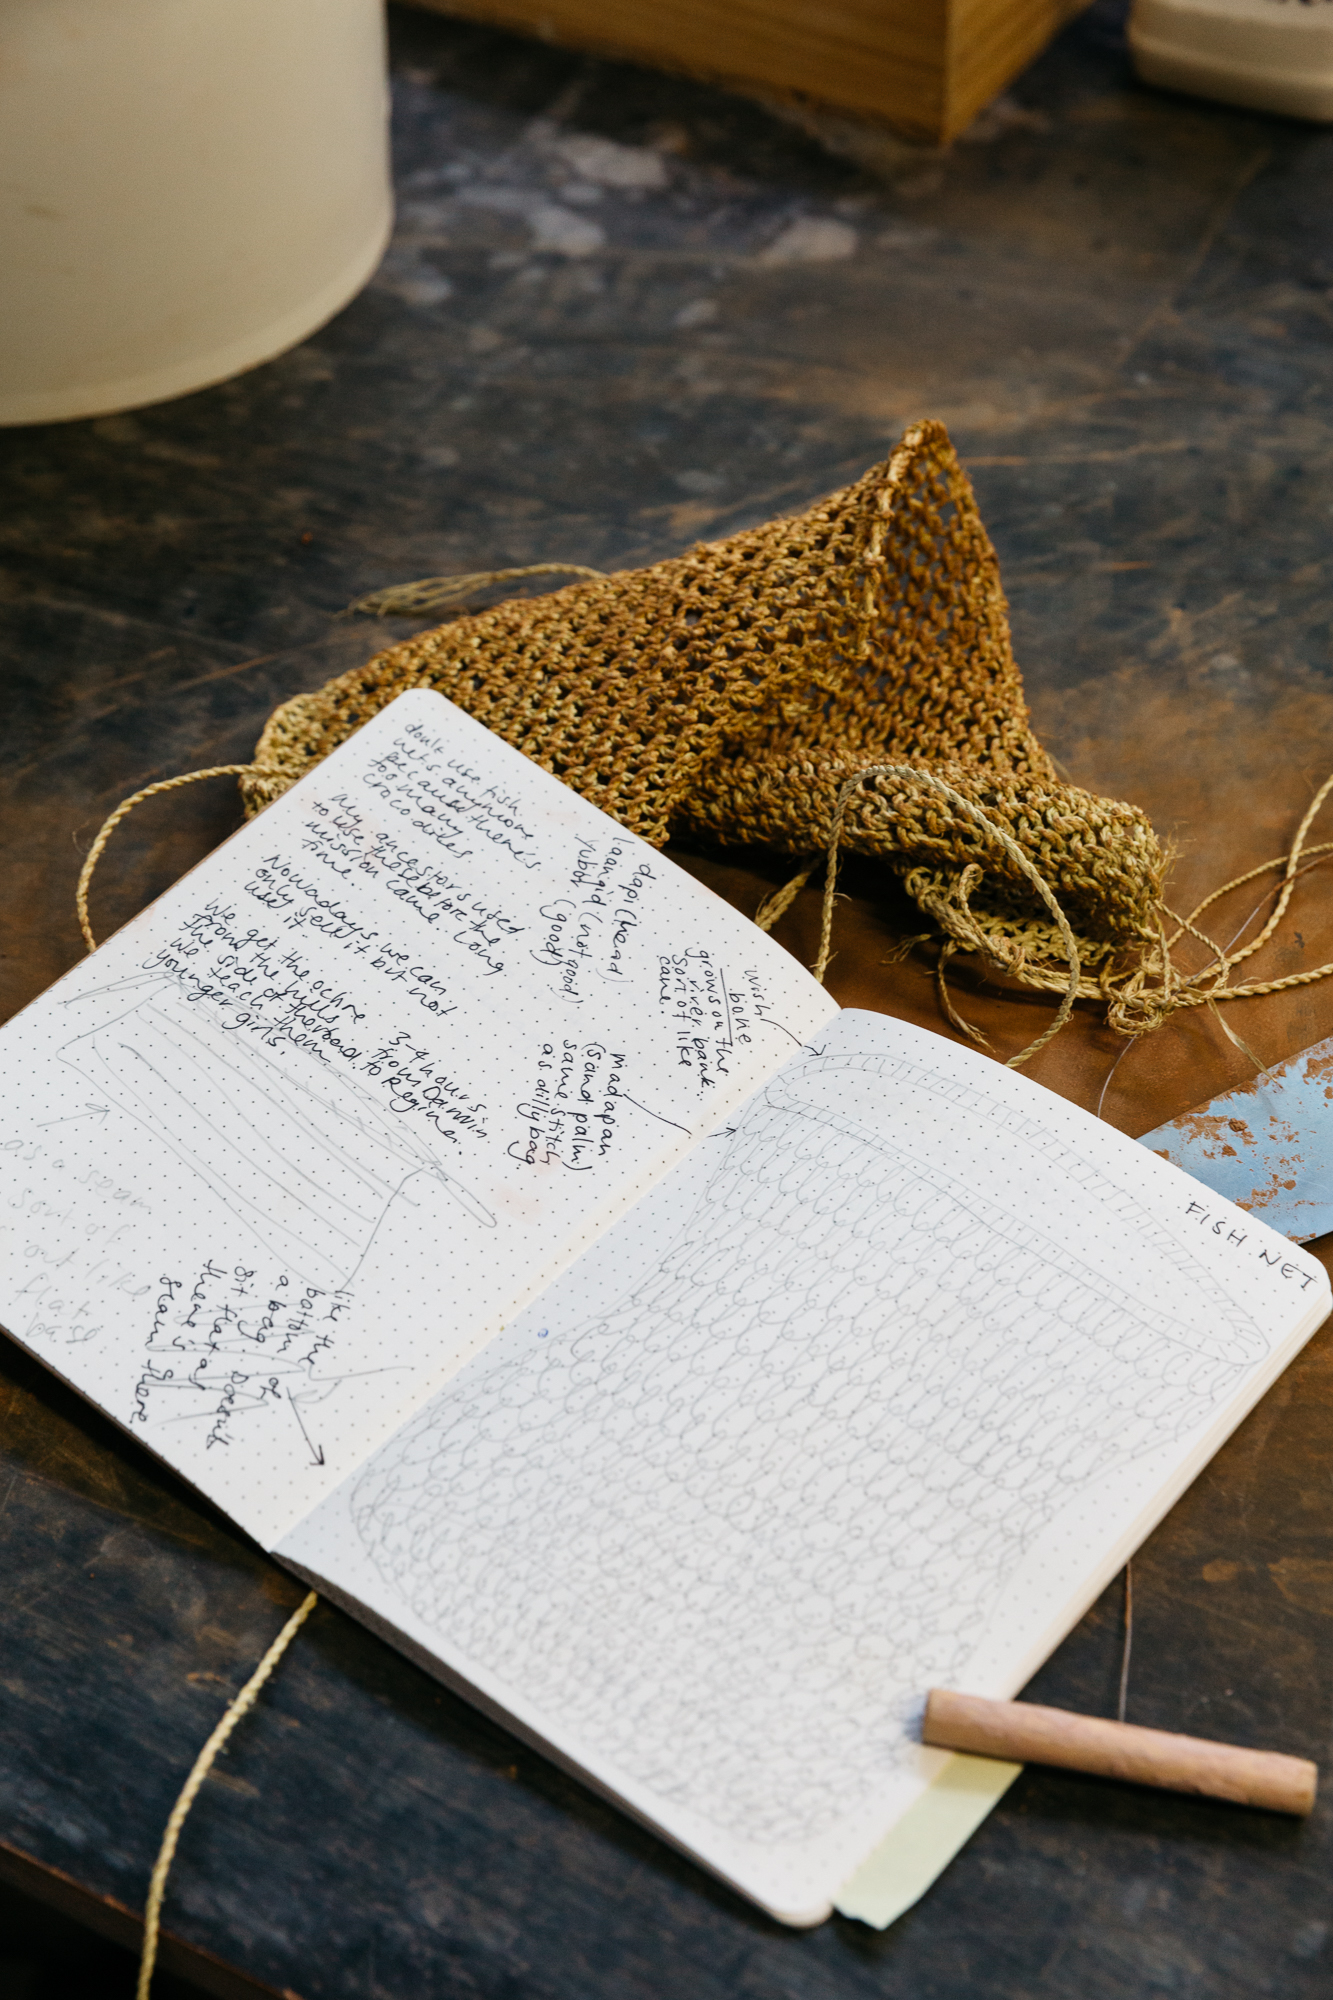 don't use fish
nets anymore
because there's
too many
crocodiles.
My ancestors used
to use these before the
mission came. Long
time.
Nowadays we can
only sell it but not
use it
We get the ochre
from the hills
the side of the road.
We teach them
younger girls.
3-4 hours
from Darwin
to Regina.
dapi (head)
(not good)
yubu (good)
wish
bone
grows on the
river bank.
sort of like
cane.
madapan
(sand palm)
same stitch
as dillybag.
FISH NET
like the
bottom of
a bag.
sit flat as
there's
seam there
as a seam
sort of
out like
flat